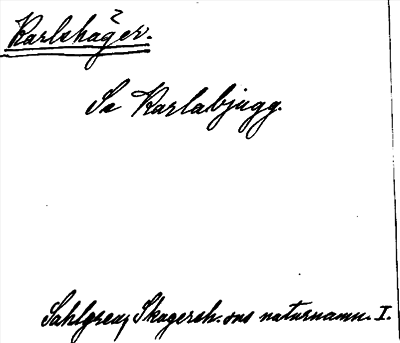 Karlshäger.
Se Karlabjugg.
Sahlgren, Skagersh. sns naturnamn. I.